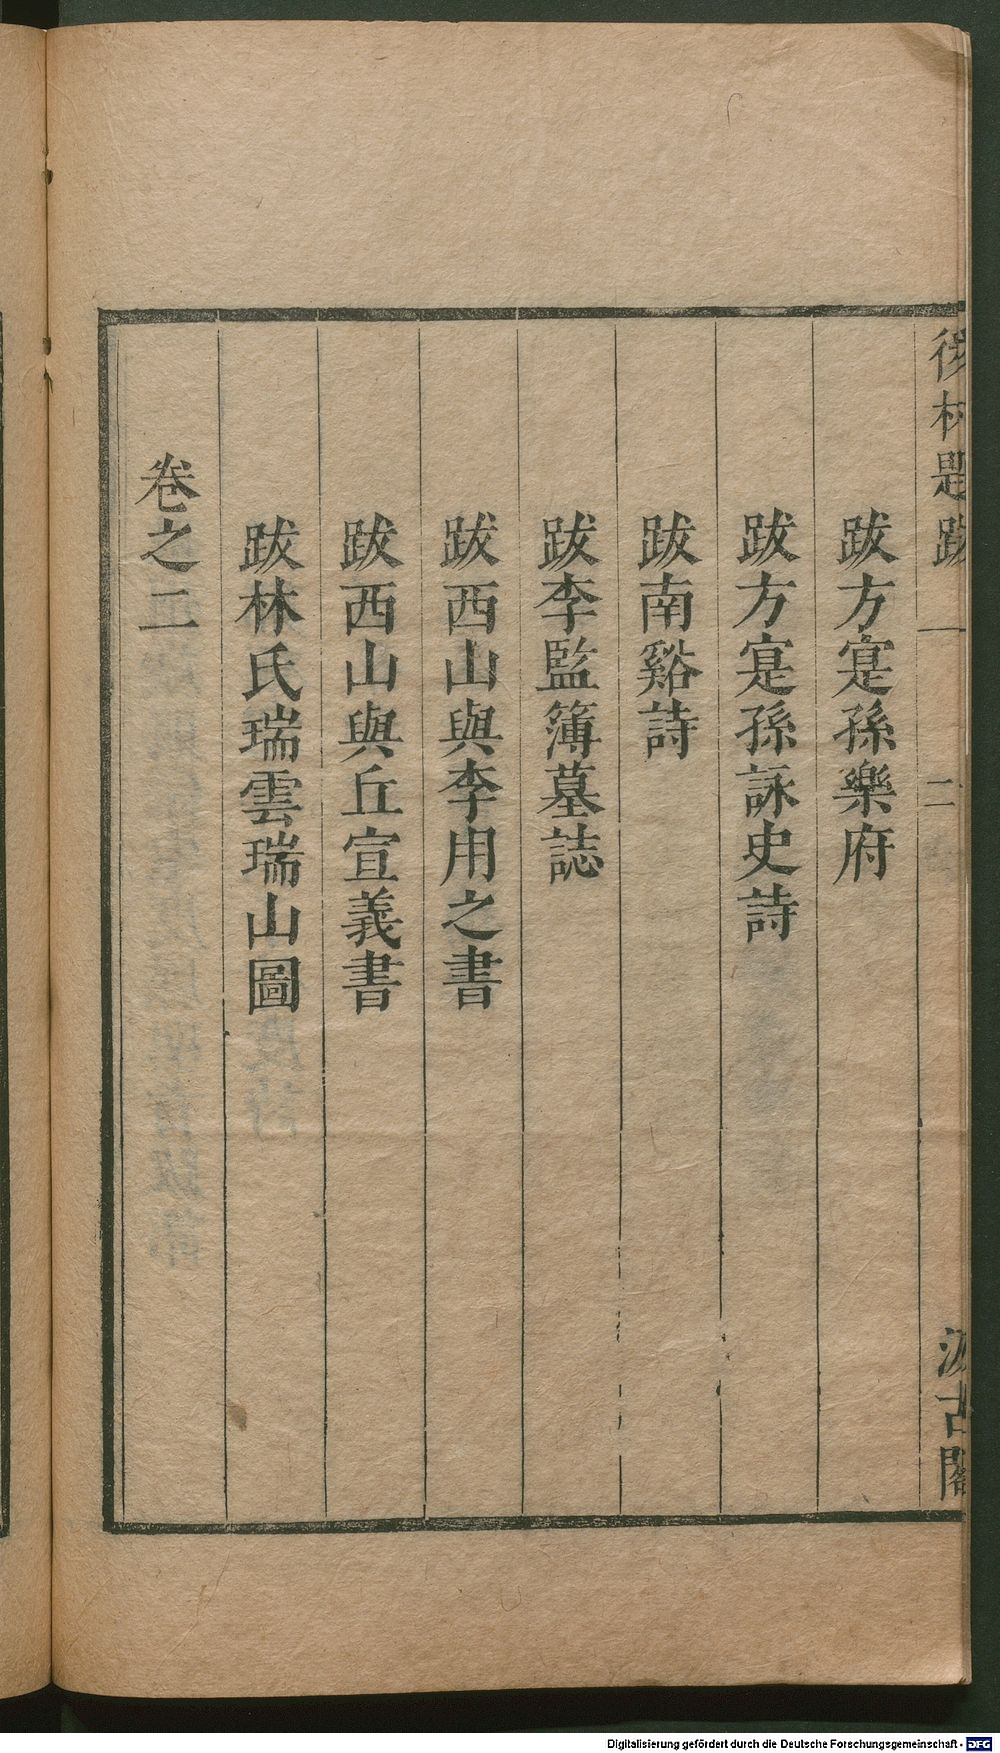 後村題跋 一 二 汲古閣
跋方寔孫樂府
跋方寔孫詠史詩
跋南谿詩
跋李監簿墓誌
跋西山與李用之書
跋西山與丘宣義書
跋林氏瑞雲瑞山圖
卷之二
Digitalisierung gefördert durch die Deutsche Forschungsgemeinschaft - DFG